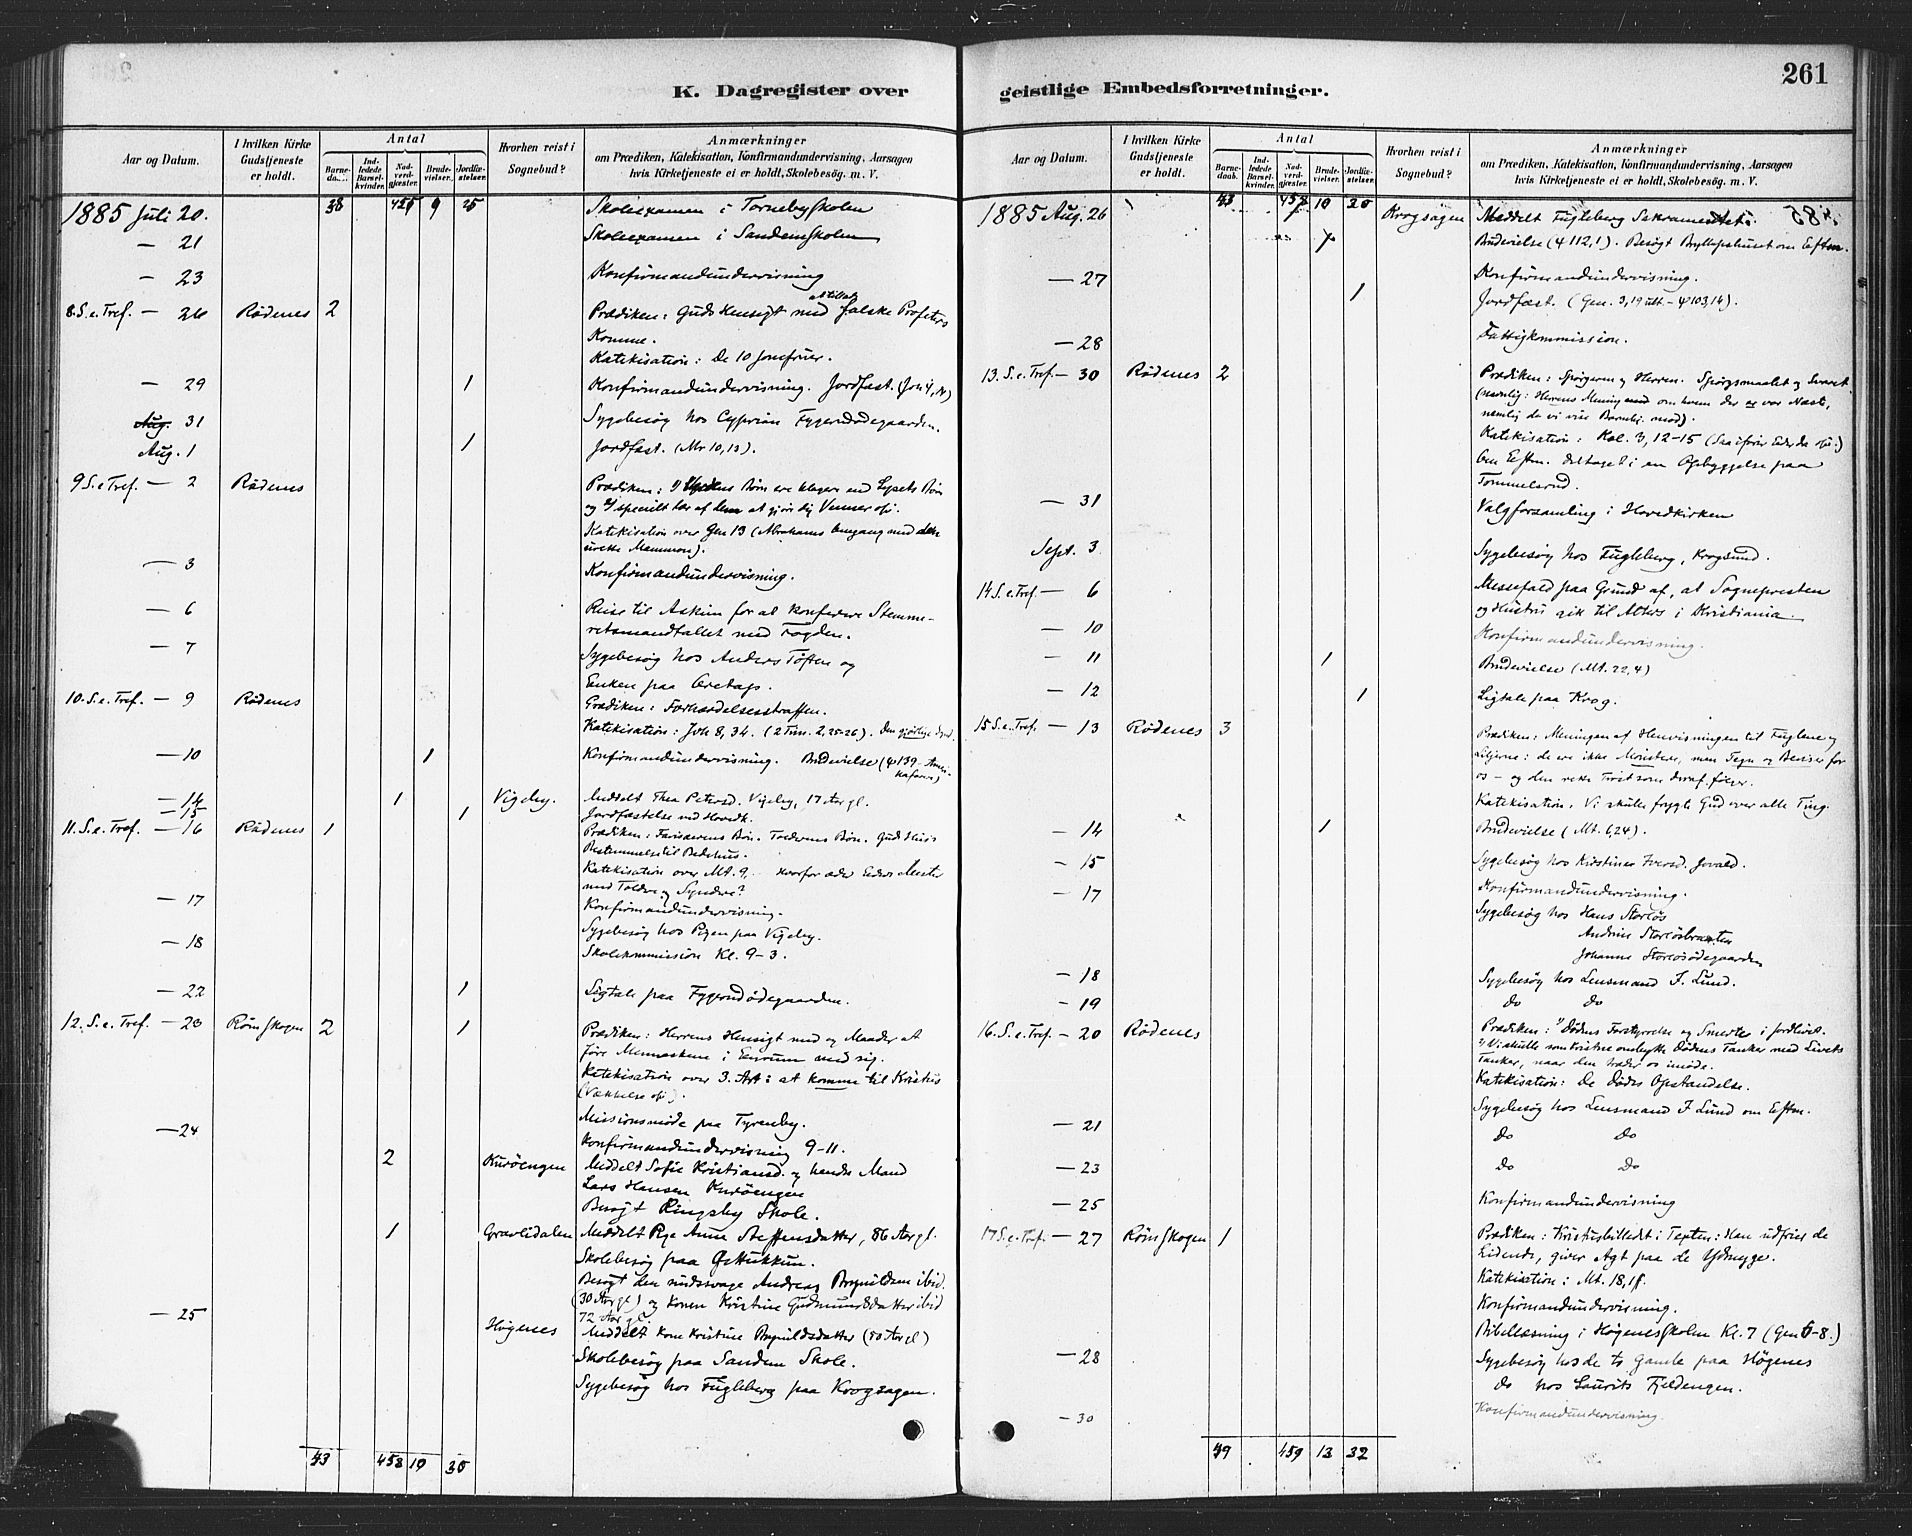 K. Dagregister over
Aar og Datum.
I hvilken Kirke Gudstjeneste er holdt.
Antal
Barne-
Ind-ledede Barsel-kvinder.
Nad-verd-gjæster.
Brude-vielser.
Jordfæ-stelser.
Hvorhen reist i Sognebud?
Anmærkninger
om Prædiken, Katekisation, Konfirmandundervisning, Aarsagen
hvis Kirketjeneste ei er holdt, Skolebesøg. m. V.
1885 Juli 20. 38 9 25 Skoleexamen i Tornebyskolen
— 21 Skoleexamen i Sandemskolen
— 23 Konfirmandundervisning
8. S. e. Tref. — 26 Rødenes 2 Prædiken: Guds Hensigt med at tillade falske Profeters
Komme.
Katekisation: De 10 Jomfruer.
— 29 1 Konfirmandundervisning. Jordfast.
Aug. 31 Sygebesøg hos Cyprian Fygerudødegaarden.
Aug. 1 1 Jordfast. (Mr 10,13).
9 S. e Tref. — 2 Rødenes Prædiken: 1) Verdens Børn ere klogere end Lysets Børn
og 2) specielt lær af dem at gjøre dig Venner osv.
Katekisation over Gen 13 (Abrahams Omgang med den
urette Mammon).
— 3 Konfirmandundervisning.
— 6 Reise til Askim for at konferere Stemme-
retsmandtallet med Fogden.
— 7 Sygebesøg hos Anders Tøften og
Enken paa
10. S. e. Tref. — 9 Rødenes Prædiken: Forhærdelsesstraffen.
Katekisation: Joh 8, 34. (2 Tim. 2, 25-26).
— 10 1 Konfirmandundervisning. Brudevielse (ψ 139
— 14 1 Vigeby. Meddelt Thea Petersd. Vigeby, 17 Aar gl.
— 15 1 Jordfæstelse ved Hovedk.
11. S. e. Tref. — 16 Rødenes 1 Prædiken: Farisæerens Bøn. Tolderens Bøn. Guds Huses
Bestemmelse til Bedehus.
Katekisation over Mt. 9, Hvorfor æder Eders Mester
med Toldere og Syndere?
— 17 Konfirmandundervisning.
Sygebesøg hos Pigen paa Vigeby.
— 18 Skolekommission Kl. 9-3.
— 22 1 Ligtale paa Fygerudødegaarden.
12. S. e. Tref. — 23 Rømskogen 2 1 Prædiken: Herrens Hensigt med og Maader at
føre Mennesken i Enrum med sig.
Katekisation over 3. Art: at komme til Kristus
(Vækkelse osv).
Missionsmøde paa Tyrneby.
— 24 Konfirmandundervisning 9-11.
2 Kurøengen Meddelt Sofie Kristiansd. og hendes Mand
Lars Hansen Kurøengen
Besøgt Ringsby Skole.
1 Gravlidalen Meddelt Pge Anne Steffensdatter, 86 Aar gl.
Skolebesøg paa
Besøgt den sindssvage Andreas Brynildsen ibid.
(30 Aar gl) og Konen Kristine Gudmundsdatter ibid
72 Aar gl.
— 25 Høgenes Meddelt Kone Kristine Brynildsdatter (50 Aar gl)
Skolebesøg paa Sandem Skole.
Sygebesøg hos Fugleberg paa Krogsagen.
43 458 10 30
geistlige Embedsforretninger.
261
Aar og Datum.
I hvilken Kirke Gudstjeneste er holdt.
Antal
Barne-daab.
Ind-ledede Barsel-kvinder.
Nad-verd-gjæster.
Brude-vielser.
Jordfæ-stelser.
Hvorhen reist i Sognebud?
Anmærkninger
om Prædiken, Katekisation, Konfirmandundervisning, Aarsagen
hvis Kirketjeneste ei er holdt, Skolebesøg. m. V.
1885 Aug. 26 43 458 10 30 Krogsagen Meddelt Fugleberg Sakramentet.
Brudevielse (ψ 112,1). Besøgt Bryllupshuset om Eftm.
— 27 Konfirmandundervisning.
1 Jordfast. (Gen. 3,19 ult. – ψ 103,14).
— 28 Fattigkommission.
13. S. e. Tref. — 30 Rødenes 2 Prædiken: Spørgeren og Herren. Spørgsmaalet og Svaret
(nemlig: Herrens Mening med om hvem der er vor Næste,
nemlig de vi vise Barmhj. mod).
Katekisation: Kol. 3, 12-15
Om Eftm. deltaget i en Opbyggelse paa
Tommelerud.
— 31 Valgforsamling i Hovedkirken
Sept. 3 Sygebesøg hos Fugleberg, Krogsund.
14 S. e. Tref — 6 Messefald paa Grund af, at Sognepresten
og Hustru gik til Alters i Kristiania
— 10 Konfirmandundervisning.
— 11 1 Brudevielse (Mt. 22,4)
— 12 1 Ligtale paa Krog.
15 S. e. Tref. — 13 Rødenes 3 Prædiken: Meningen af Henvisningen til Fuglene og
Liljerne: de ere ikke Mønstere, men Tegn og Beviser for
os – og den rette Trøst som deraf følger.
Katekisation. Vi skulle frygte Gud over alle Ting.
— 14 1 Brudevielse (Mt. 6,24).
— 15 Sygebesøg hos Kirstine Iversd. Jovald.
— 17 Konfirmandundervisning.
Sygebesøg hos Hans Storløs
Andrine Storløsbraaten
Johanne Storløsødegaarden
— 18 Sygebesøg hos Lensmand F. Lund.
— 19 do do
16. S. e. Tref — 20 Rødenes Prædiken: 1) Dødens Forstyrrelse og Smerte i Jordlivet.
2) Vi skulle som Kristne ombytte Dødens Tanker med Livets
Tanker, naar den træder os imøde.
Katekisation: De Dødes Opstandelse.
Sygebesøg hos Lensmand F Lund om Eftm.
— 21 do do
— 23 do do
— 25 Konfirmandundervisning
17 S. e. Tref. — 27 Rømskogen 1 Prædiken: Kristusbilledet i Texten: Han udfrier de
Lidende, giver Agt paa de Ydmyge.
Katekisation: Mt. 18, 1ff.
Konfirmandundervisning.
Bibellæsning i Høgenesskolen Kl. 7 (Gen 6-8.)
— 28 Sygebesøg hos de to Gamle paa Høgenes
do hos Laurits Fjeldengen.
— 30 Konfirmandundervisning.
49 459 13 32